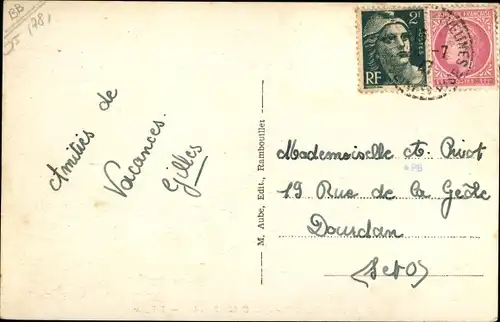 BB
Amitiés de
Vacances.
Gilles
M. Aube, Edit., Rambouillet
2F
POSTES
RF
FRANÇAISE
-7
Mademoiselle A. Pivot
PB
19 Rue de la Geôle
Dourdan
(S et O)